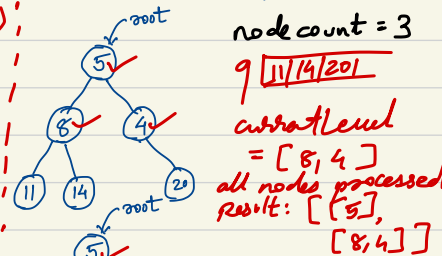 root
5
8 4
11 14 20
root
5
node count = 3
q 11 14 20
currentLevel
= [8, 4]
all nodes processed
Result: [[5],
[8,4]]